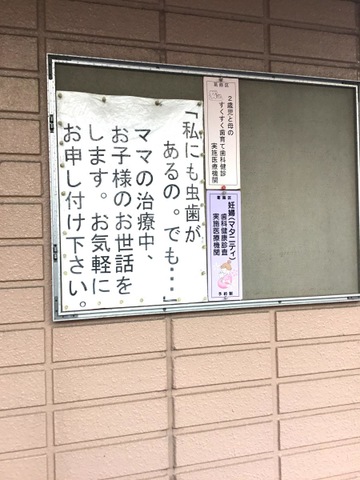 「私にも虫歯が
あるの。でも・・・」
ママの治療中、
お子様のお世話を
します。お気軽に
お申し付け下さい。
2歳児と母の
すくすく歯育て歯科健診
実施医療機関
妊婦(マタニティ)
歯科健康診査
実施医療機関